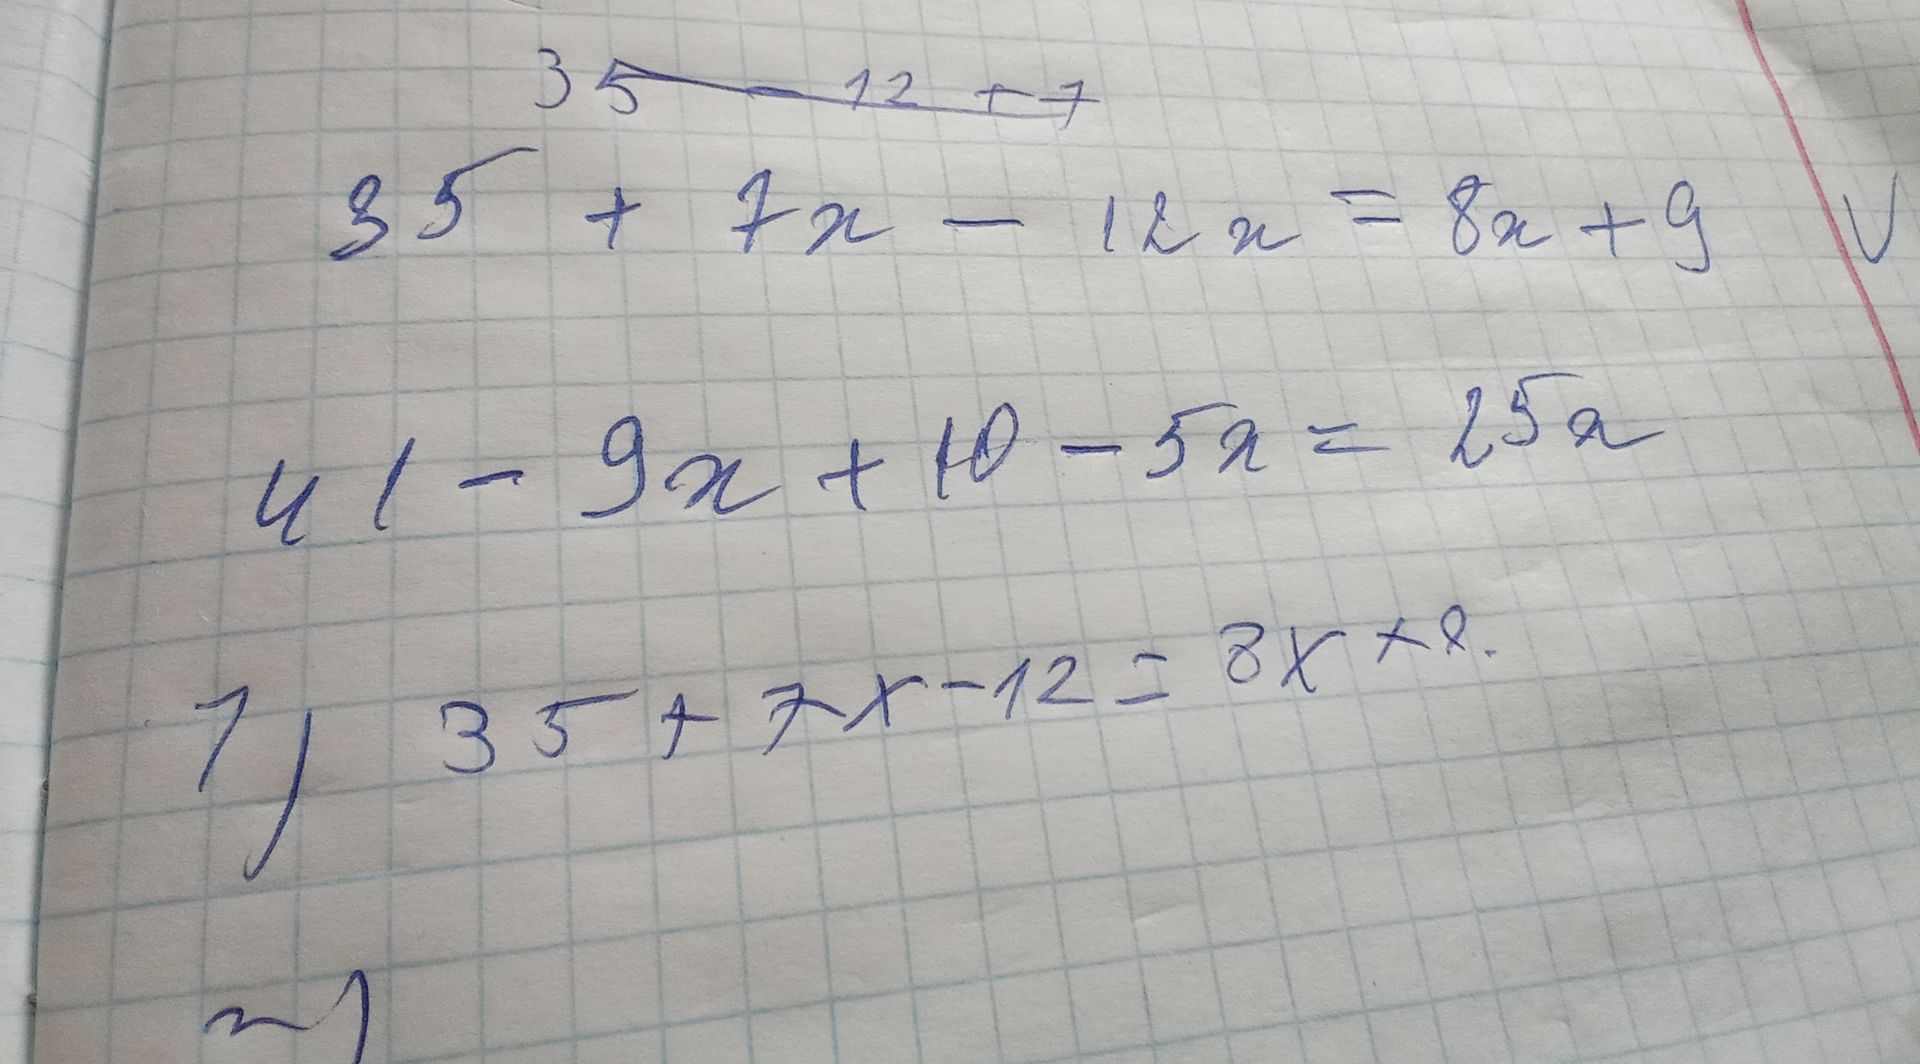 35 - 12 + 7
35 + 7x - 12x = 8x + 9 V
41 - 9x + 10 - 5x = 25x
1) 35 + 7x - 12 = 8x + 8.